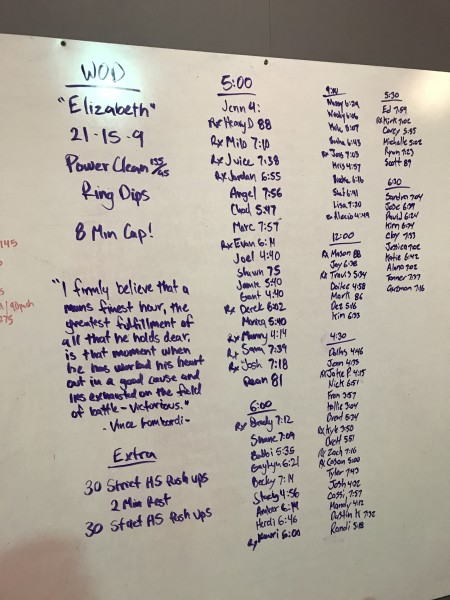 WOD
"Elizabeth"
21-15-9
Power Clean 135/95
Ring Dips
8 Min Cap!
"I firmly believe that a
mans finest hour, the
greatest fulfillment of
all that he holds dear,
is that moment when
he has worked his heart
out in a good cause and
lies exhausted on the field
of battle - Victorious."
- Vince Lombardi -
Extra
30 Strict HS Push ups
2 Min Rest
30 Strict HS Push ups
5:00
Jenn 4:
Rx Heavy D 88
Rx Milo 7:10
Rx Juice 7:38
Rx Jordan 6:55
Angel 7:56
Chad 5:47
Marc 7:57
Rx Evan 6:14
Joel 4:40
Shawn 75
Jamie 5:40
Grant 4:40
Rx Derek 6:02
Monica 5:40
Rx Manny 4:14
Rx Sami 7:39
Rx Josh 7:18
Dean 81
6:00
Rx Brady 7:12
Shane 7:09
Bobbi 5:35
Gaylyn 6:21
Becky 7:14
Stacy 4:56
Amber 6:14
Heidi 6:46
Rx Kauri 6:00
Missy 6:29
Woody 6:06
5:07
6:43
Rx 7:03
Kris 4:57
6:16
6:41
Lisa 7:30
Rx Alecio 4:49
12:00
Rx Mason 88
Jay 6:28
Rx Travis 5:04
Dailee 4:58
Mark 86
Dez 5:16
Kim 6:33
4:30
Dallas 4:46
Jenn 4:33
Rx Jake P. 4:15
Nick 6:51
Fran 3:57
Hollie 3:04
Brad 5:24
Rx Kyle 3:50
Brett 5:51
Rx Zach 7:16
Rx Carson 5:00
Tyler 7:43
Josh 4:02
Cassi 7:57
Mandy 4:12
Dustin H 7:32
Randi 5:18
5:30
Ed 7:59
Rx Kirk 7:02
Carey 5:45
Michelle 5:02
Ryan 7:23
Scott 89
6:30
Sandra 7:04
Jose 6:39
David 6:24
Kim 6:34
Clay 7:53
Jessica 7:02
Katie 6:42
Alana 7:02
Tanner 7:37
Guzman 7:16
145
275